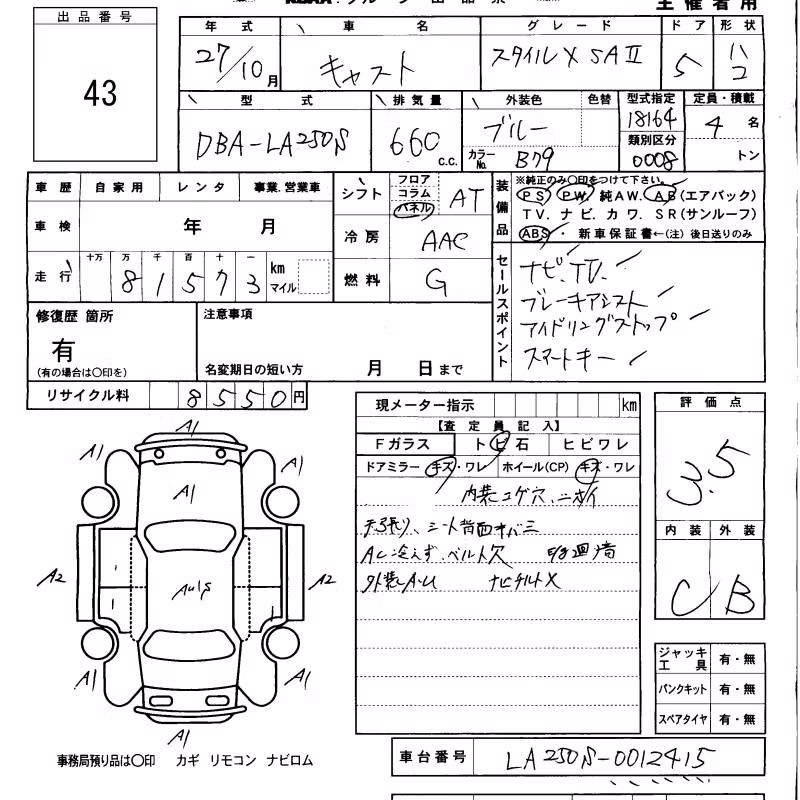 出品番号
43
主催者用
年式 車名 グレード ドア 形状
27/10月 キャスト スタイルX SAⅡ 5 ハコ
型式 排気量 外装色 色替 型式指定 定員・積載
DBA-LA250S 660 c.c. ブルー カラーNo. B79 18164 4名
類別区分
0008 トン
車歴 自家用 レンタ 事業.営業車
シフト フロア コラム パネル AT
装備品
※純正のみ〇印をつけて下さい。
PS PW 純AW. AB(エアバック)
TV. ナビ. カワ. SR(サンルーフ)
ABS ・ 新車保証書←(注) 後日送りのみ
車検 年 月
冷房 AAC
走行 十万 万 千 百 十 一
81573 km マイル
燃料 G
セールスポイント
ナビ.TV.
ブレーキアシスト
アイドリングストップ
スマートキー
修復歴 箇所
有
(有の場合は〇印を)
注意事項
名変期日の短い方 月 日まで
リサイクル料 8550円
現メーター指示 km
【査定員記入】
Fガラス トビ石 ヒビワレ
ドアミラー キズ・ワレ ホイール(CP) キズ・ワレ
内装コゲ穴、ニオイ
天張り、シート背面
ACル冷えず、ベルト欠
外装A・U ナビチルトX
評価点
3.5
内装 外装
C B
A1
A1 A1
A1
A2 A2
A1 A1
A1
ジャッキ工具 有・無
パンクキット 有・無
スペアタイヤ 有・無
事務局預り品は〇印 カギ リモコン ナビロム
車台番号 LA250S-0012415